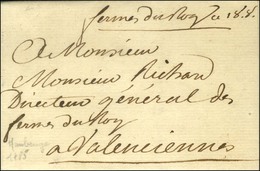 fermes du Roy
A Monsieur
Monsieur Richard
Directeur général des
fermes du Roy
a Valenciennes